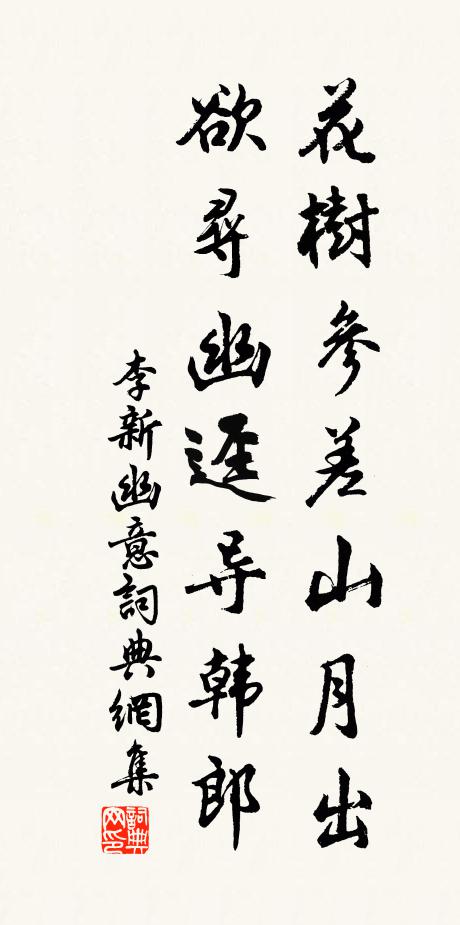 花樹參差山月出
欲尋幽逕导韩郎
李新幽意詞典網集
詞典
网印